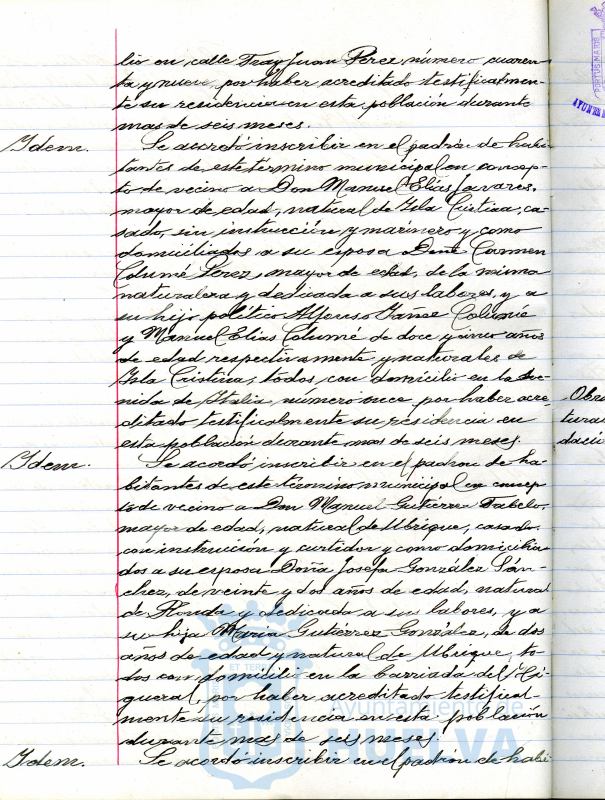 lio en calle Fray Juan Perez, número cuaren-
ta y nueve, por haber acreditado testificalmen-
te su residencia en esta población durante
mas de seis meses.
Idem. Se acordó inscribir en el padrón de habi-
tantes de este término municipal en concep-
to de vecino a Don Manuel Elías Javares,
mayor de edad, natural de Isla Cristina, ca-
sado, sin instrucción y marinero y como
domiciliados a su esposa Doña Carmen
Columé Perez, mayor de edad, de la misma
naturaleza y dedicada a sus labores, y a
su hijo político Alfonso Columé
y Manuel Elías Columé de doce y cinco años
de edad respectivamente y naturales de
Isla Cristina, todos con domicilio en la Ave-
nida de Italia, número once por haber acre-
ditado testificalmente su residencia en
esta población durante mas de seis meses.
Idem. Se acordó inscribir en el padrón de ha-
bitantes de este término municipal en concep-
to de vecino a Don Manuel Gutiérrez Fabelo,
mayor de edad, natural de Ubrique, casado
con instrucción y curtidor y como domicilia-
dos a su esposa Doña Josefa González Sán-
chez, de veinte y dos años de edad, natural
de Ronda y dedicada a sus labores, y a
su hija María Gutiérrez González, de dos
años de edad y natural de Ubrique, to-
dos con domicilio en la barriada del Hi-
gueral, por haber acreditado testifical-
mente su residencia en esta población
durante mas de seis meses.
Idem. Se acordó inscribir en el padrón de habi-
Obra
turas
dacio
PORTUS MARIS
ET TERR
Ayuntamiento de
HUELVA